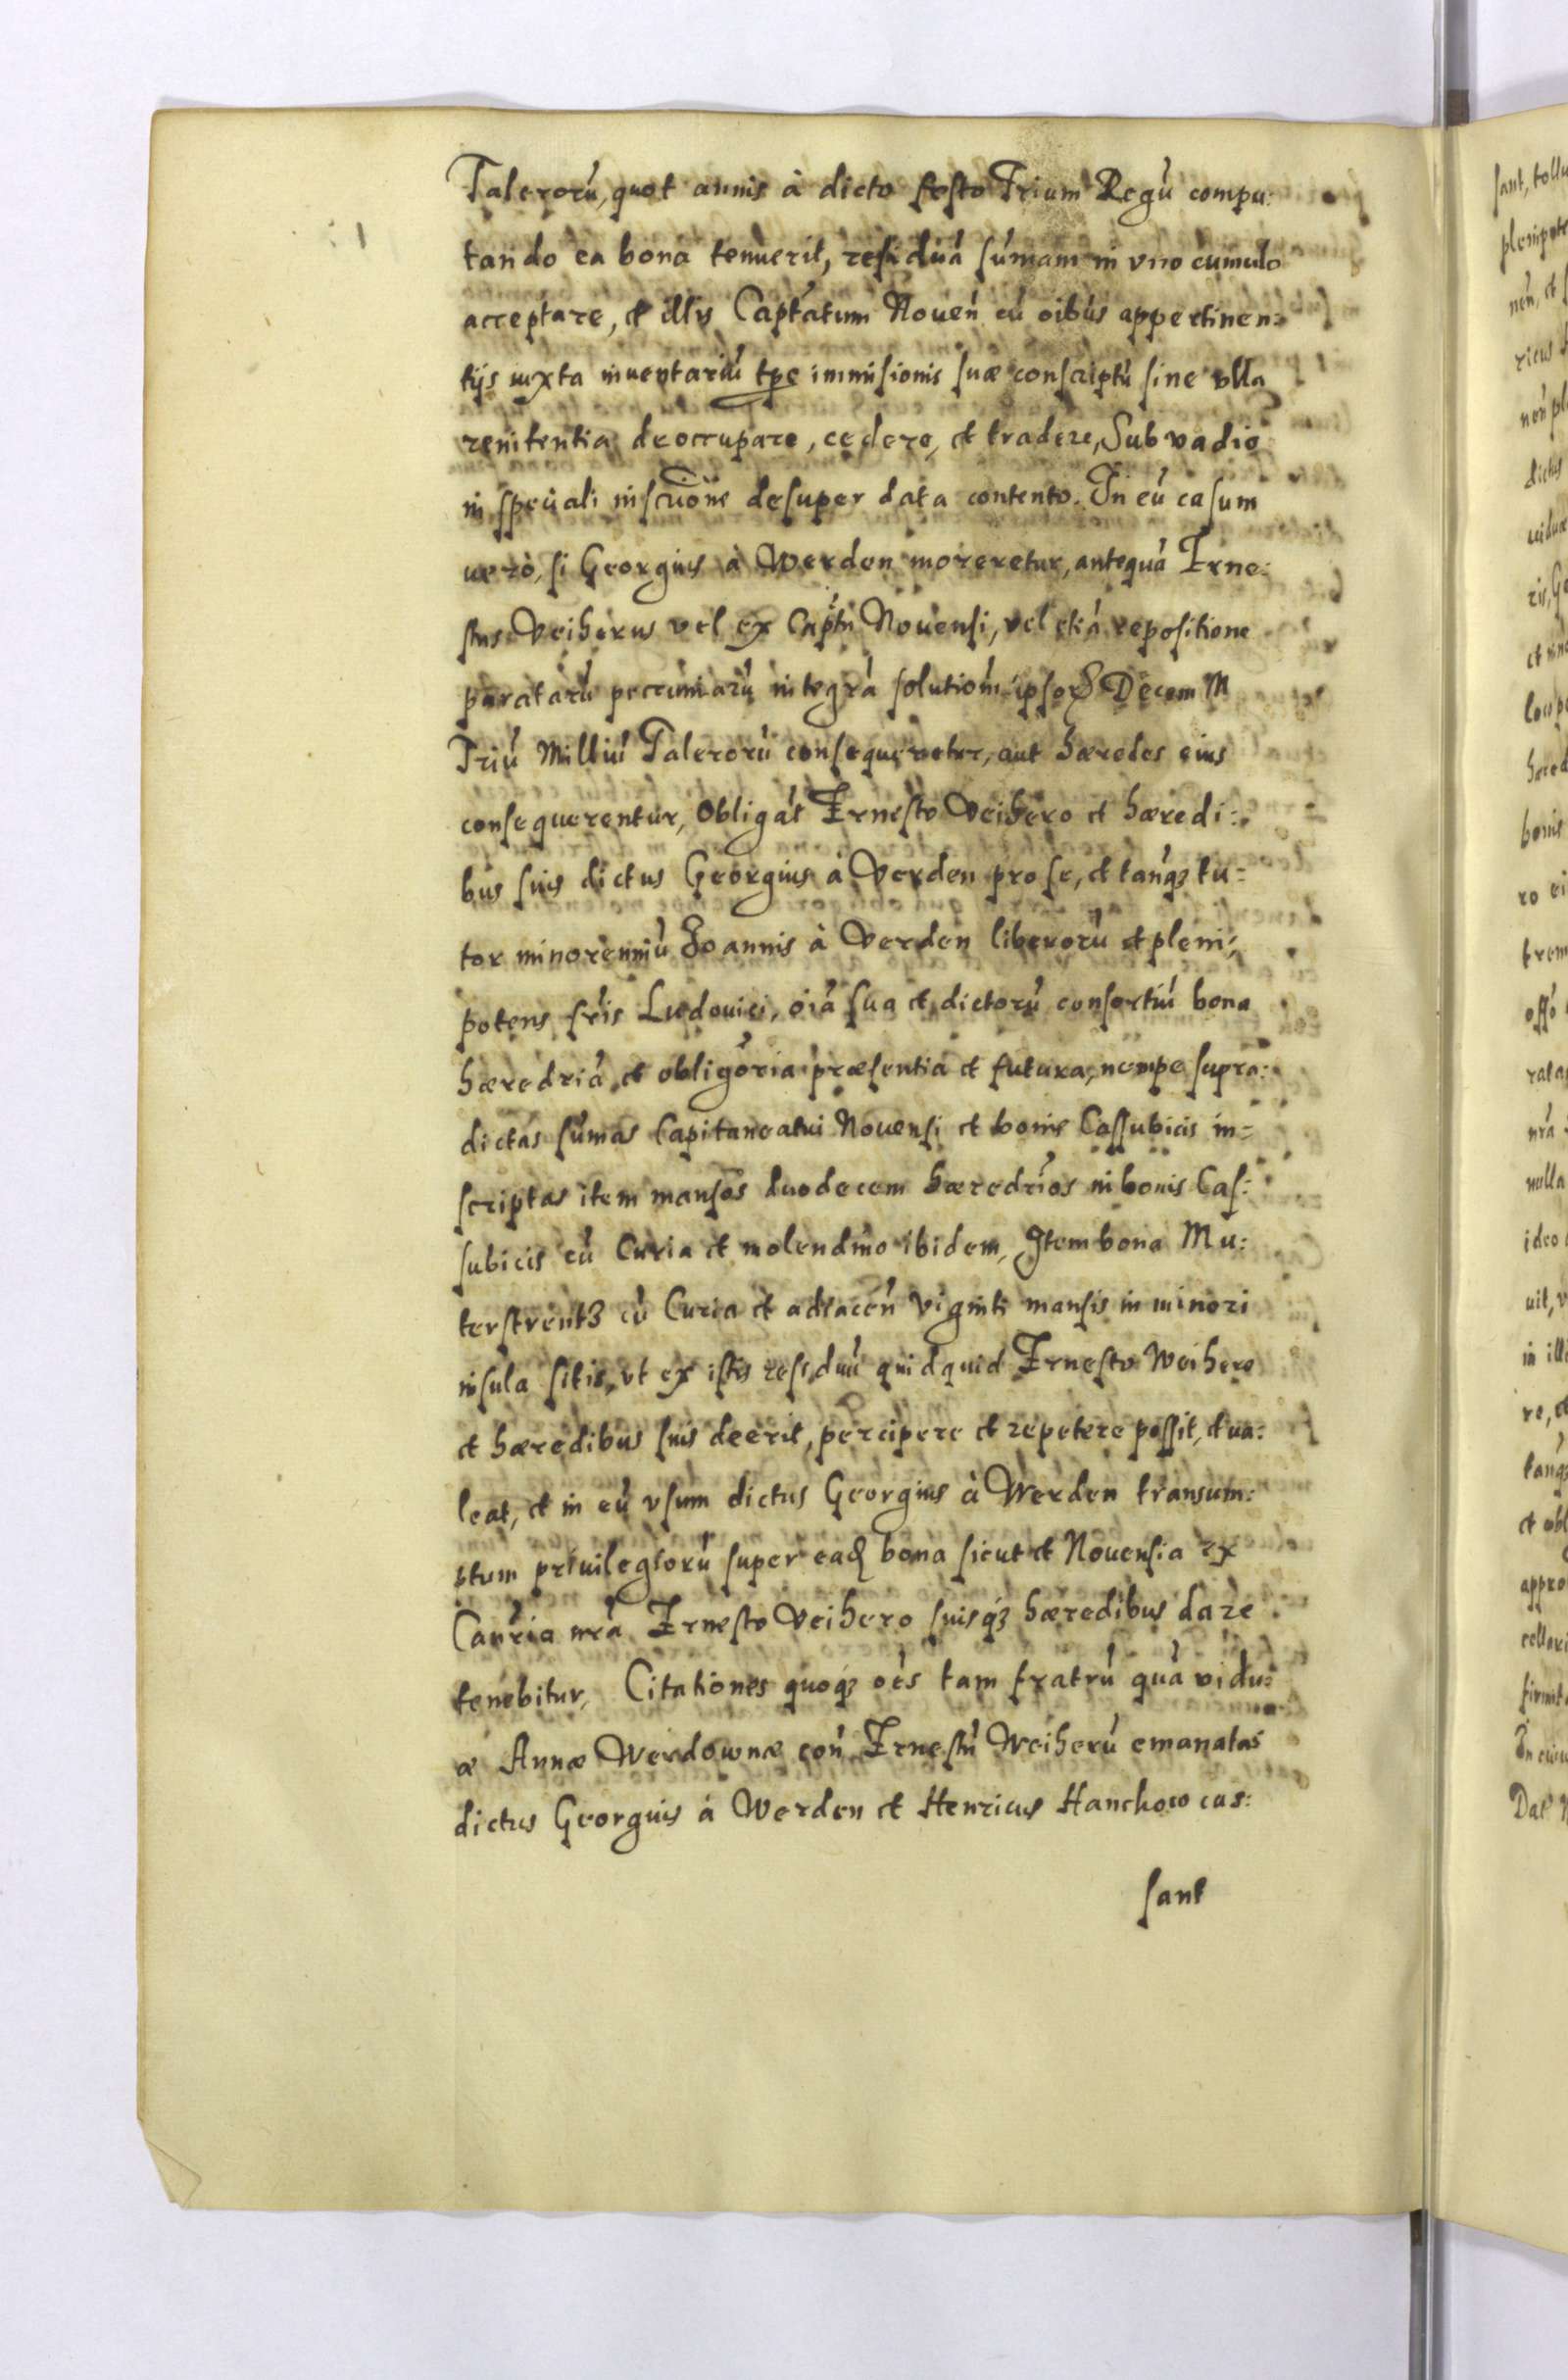 Talerorũ, quot annis à dicto festo Trium Regũ compu:
tando ea bona tenuerit, residuã sũmam in vno cumulo
acceptare, et illis Captatum Nouen̄ cũ oĩbus appertinen:
tijs iuxta inuentariũ tpe immisionis suæ conscriptũ sine vlla
renitentia deoccupare, cedere, et tradere, Sub vadio
in speciali inscriõne desuper data contento. In eũ casum
uerò, si Georgius à Werden moreretur, antequã Erne:
stus Veiherus vel ex Captũ Nouensi, vel etiã repositione
paratarũ pecuniarũ integrã solutiom̃ ipsorꝝ Decem M
Triũ Milliũ Talerorũ consequeretur, aut hæredes eius
consequerentur, Obligat Ernesto Veihero et hæredi:
bus suis dictus Georgius à Verden pro se, et tanqꝫ tu:
tor minorenniũ Joannis à Verden liberorũ et pleni:
potens fris Ludouici, oĩa sua et dictorũ consortiũ bona
hæredria et obligõria præsentia et futura, nempe supra:
dictas sũmas Capitaneatui Nouensi et bonis Cassubicis in:
scriptas item mansos duodecem hæredrios in bonis Cas:
subicis cũ Curia et molendino ibidem, Item bona Mu:
terstrentz cũ Curia et adiacen̄ viginti mansis in minori
insula sitis, vt ex istis residuũ quidquid Ernesto Weihero
et hæredibus suis deerit, percipere et repetere possit, et ua:
leat, et in eũ vsum dictus Georgius à Werden transum:
ptum priuilegiorũ super ead bona sicut et Nouensia ex
Canria nrã Ernesto Veihero suisqꝫ hæredibus dare
tenebitur, Citationes quoqꝫ oẽs tam fratrũ quã vidu:
æ Annæ Werdownæ con̄ Ernestũ Weiherũ emanatas
dictus Georguis à Werden et Henricus Hanchow cas:
sant